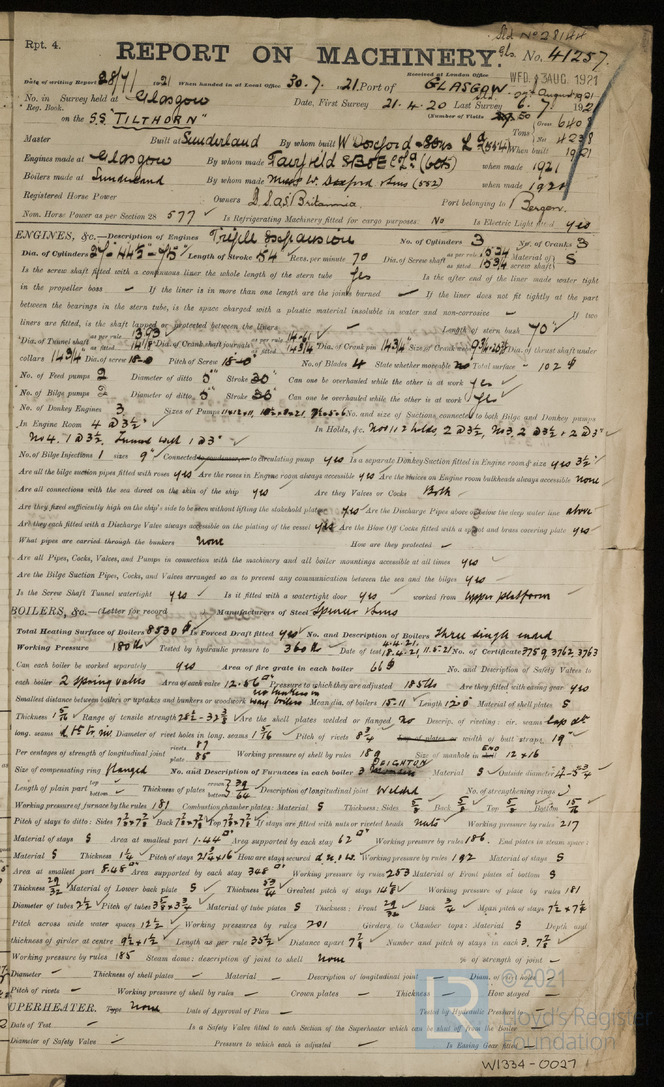 Rpt. 4.
REPORT ON MACHINERY.
No. 41257.
Received at London Office WED. 3 AUG. 1921
Date of writing Report 28/7/1921 When handed in at Local Office 30.7.21. Port of GLASGOW
No. in Reg. Book. Survey held at Glasgow Date, First Survey 21.4.20 Last Survey 6.7.192
(Number of Visits
on the S.S. "TILTHORN" Tons Gross 6408 Net
Master Built at Sunderland By whom built W. Doxford & Sons Ld When built 1921
Engines made at Glasgow By whom made Fairfield when made 1921
Boilers made at Sunderland By whom made Messrs W. Doxford & Sons (552) when made 192
Registered Horse Power Owners Britannia. Port belonging to Bergen.
Nom. Horse Power as per Section 28 577 Is Refrigerating Machinery fitted for cargo purposes: No Is Electric Light fitted yes
ENGINES, &c.—Description of Engines Triple Expansion No. of Cylinders 3 No. of Cranks 3
Dia. of Cylinders 27"-44.5"-75" Length of Stroke 54 Revs. per minute 70 Dia. of Screw shaft as per rule as fitted 15 3/4 Material of screw shaft S
Is the screw shaft fitted with a continuous liner the whole length of the stern tube Yes Is the after end of the liner made water tight
in the propeller boss - If the liner is in more than one length are the joints burned - If the liner does not fit tightly at the part
between the bearings in the stern tube, is the space charged with a plastic material insoluble in water and non-corrosive - If two
liners are fitted, is the shaft lapped or protected between the liners - Length of stern bush 70"
Dia. of Tunnel shaft as per rule 13.93 as fitted 14 1/8 Dia. of Crank shaft journals as per rule 14.61 as fitted 14 3/4 Dia. of Crank pin 14 3/4 Size of Crank webs Dia. of thrust shaft under
collars 14 3/4 Dia. of screw 18-0 Pitch of Screw 15-0 No. of Blades 4 State whether moveable no Total surface 102
No. of Feed pumps 2 Diameter of ditto Stroke 30" Can one be overhauled while the other is at work yes
No. of Bilge pumps 2 Diameter of ditto Stroke 30" Can one be overhauled while the other is at work yes
No. of Donkey Engines 3 Sizes of Pumps No. and size of Suctions connected to both Bilge and Donkey pumps
In Engine Room 4 @ 3 1/2" In Holds, &c. No 1, 2 holds 2 @ 3 1/2, No 3, 2 @ 3 1/2 + 2 @ 3"
No 4. 1 @ 3 1/2, Tunnel well 1 @ 3"
No. of Bilge Injections 1 sizes 9" Connected to condenser, or to circulating pump yes Is a separate Donkey Suction fitted in Engine room & size yes 3 1/2"
Are all the bilge suction pipes fitted with roses yes Are the roses in Engine room always accessible yes Are the sluices on Engine room bulkheads always accessible none
Are all connections with the sea direct on the skin of the ship yes Are they Valves or Cocks Both
Are they fixed sufficiently high on the ship's side to be seen without lifting the stokehold plates yes Are the Discharge Pipes above or below the deep water line above
Are they each fitted with a Discharge Valve always accessible on the plating of the vessel yes Are the Blow Off Cocks fitted with a spigot and brass covering plate yes
What pipes are carried through the bunkers none How are they protected -
Are all Pipes, Cocks, Valves, and Pumps in connection with the machinery and all boiler mountings accessible at all times yes
Are the Bilge Suction Pipes, Cocks, and Valves arranged so as to prevent any communication between the sea and the bilges yes
Is the Screw Shaft Tunnel watertight yes Is it fitted with a watertight door yes worked from Upper platform
BOILERS, &c.—(Letter for record ) Manufacturers of Steel Spencer & Sons
Total Heating Surface of Boilers 8530 Is Forced Draft fitted yes No. and Description of Boilers three single ended
Working Pressure 180 lbs Tested by hydraulic pressure to 360 lbs Date of test 4.4.21. 18.4.21. 11.5.21 No. of Certificate 3759, 3762, 3763
Can each boiler be worked separately yes Area of fire grate in each boiler 66 No. and Description of Safety Valves to
each boiler 2 Spring valves Area of each valve 12.56" Pressure to which they are adjusted 185 lbs Are they fitted with easing gear yes
Smallest distance between boilers or uptakes and bunkers or woodwork Mean dia. of boilers 15-11 Length 12-0 Material of shell plates S
Thickness 1 5/16 Range of tensile strength Are the shell plates welded or flanged No Descrip. of riveting: cir. seams Lap
long. seams Diameter of rivet holes in long. seams 1 3/8 Pitch of rivets Lap of plates or width of butt straps 19"
Per centages of strength of longitudinal joint rivets 87 plate 85 Working pressure of shell by rules Size of manhole in END 12 x 16
Size of compensating ring flanged No. and Description of Furnaces in each boiler 3 DEIGHTON Material S Outside diameter
Length of plain part top bottom Thickness of plates crown bottom Description of longitudinal joint Welded No. of strengthening rings
Working pressure of furnace by the rules 181 Combustion chamber plates: Material S Thickness: Sides 5/8 Back 5/8 Top 5/8 Bottom 15/16
Pitch of stays to ditto: Sides Back Top If stays are fitted with nuts or riveted heads nuts Working pressure by rules 217
Material of stays S Area at smallest part 1.44 Area supported by each stay 62 Working pressure by rules 186. End plates in steam space:
Material S Thickness Pitch of stays How are stays secured Working pressure by rules 192 Material of stays S
Area at smallest part 8.48 Area supported by each stay 348 Working pressure by rules 253 Material of Front plates at bottom S
Thickness 29/32 Material of Lower back plate S Thickness Greatest pitch of stays Working pressure of plate by rules 181
Diameter of tubes 2 1/2 Pitch of tubes Material of tube plates S Thickness: Front 29/32 Back 3/4 Mean pitch of stays
Pitch across wide water spaces Working pressures by rules 201 Girders to Chamber tops: Material S Depth and
thickness of girder at centre Length as per rule 35 1/2 Distance apart 7 7/8 Number and pitch of stays in each 3. 7 3/4
Working pressure by rules 185 Steam dome: description of joint to shell None % of strength of joint -
Diameter - Thickness of shell plates - Material - Description of longitudinal joint - Diam. of rivet holes
Pitch of rivets - Working pressure of shell by rules - Crown plates - Thickness - How stayed -
SUPERHEATER. Type None Date of Approval of Plan - Tested by Hydraulic Pressure
Date of Test - Is a Safety Valve fitted to each Section of the Superheater which can be shut off from the Boiler
Diameter of Safety Valve - Pressure to which each is adjusted - Is Easing Gear fitted
© 2021
Lloyd's Register
Foundation
W1334-0027